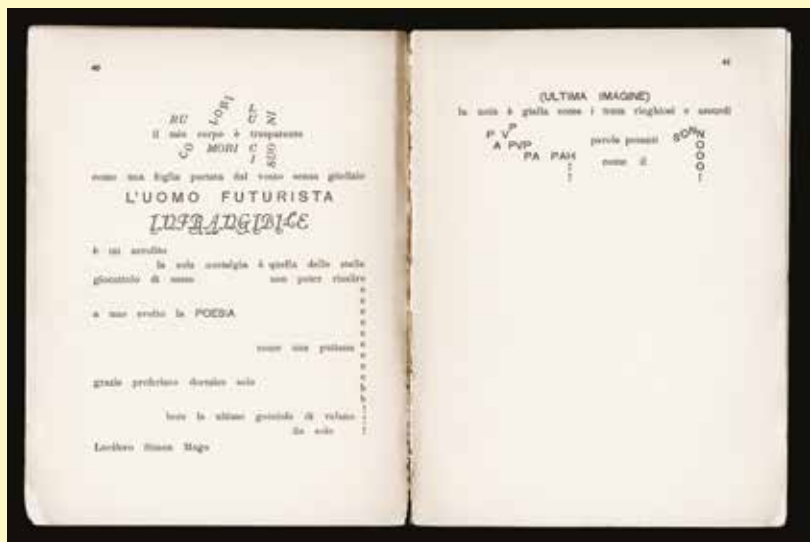 40
RU LORI PU NI
il mio corpo è trasparente
CO MORI CI SUO
come una foglia portata dal vento senza
L'UOMO FUTURISTA
INFRANGIBILE
è un aerolito
la sola nostalgia è quella delle stelle
giocattolo di sasso non poter risalire
a uno svolto la POESIA
come una puttana
grazie preferisco dormire solo
bevo le ultime gocciole di veleno
da solo
Lucifero Simon Mago
41
(ULTIMA IMAGINE)
la noia è gialla come i trams ringhiosi e assurdi
P V P
A PVP parole pesanti SONN
PA PAH come il O
! O
! O
! !